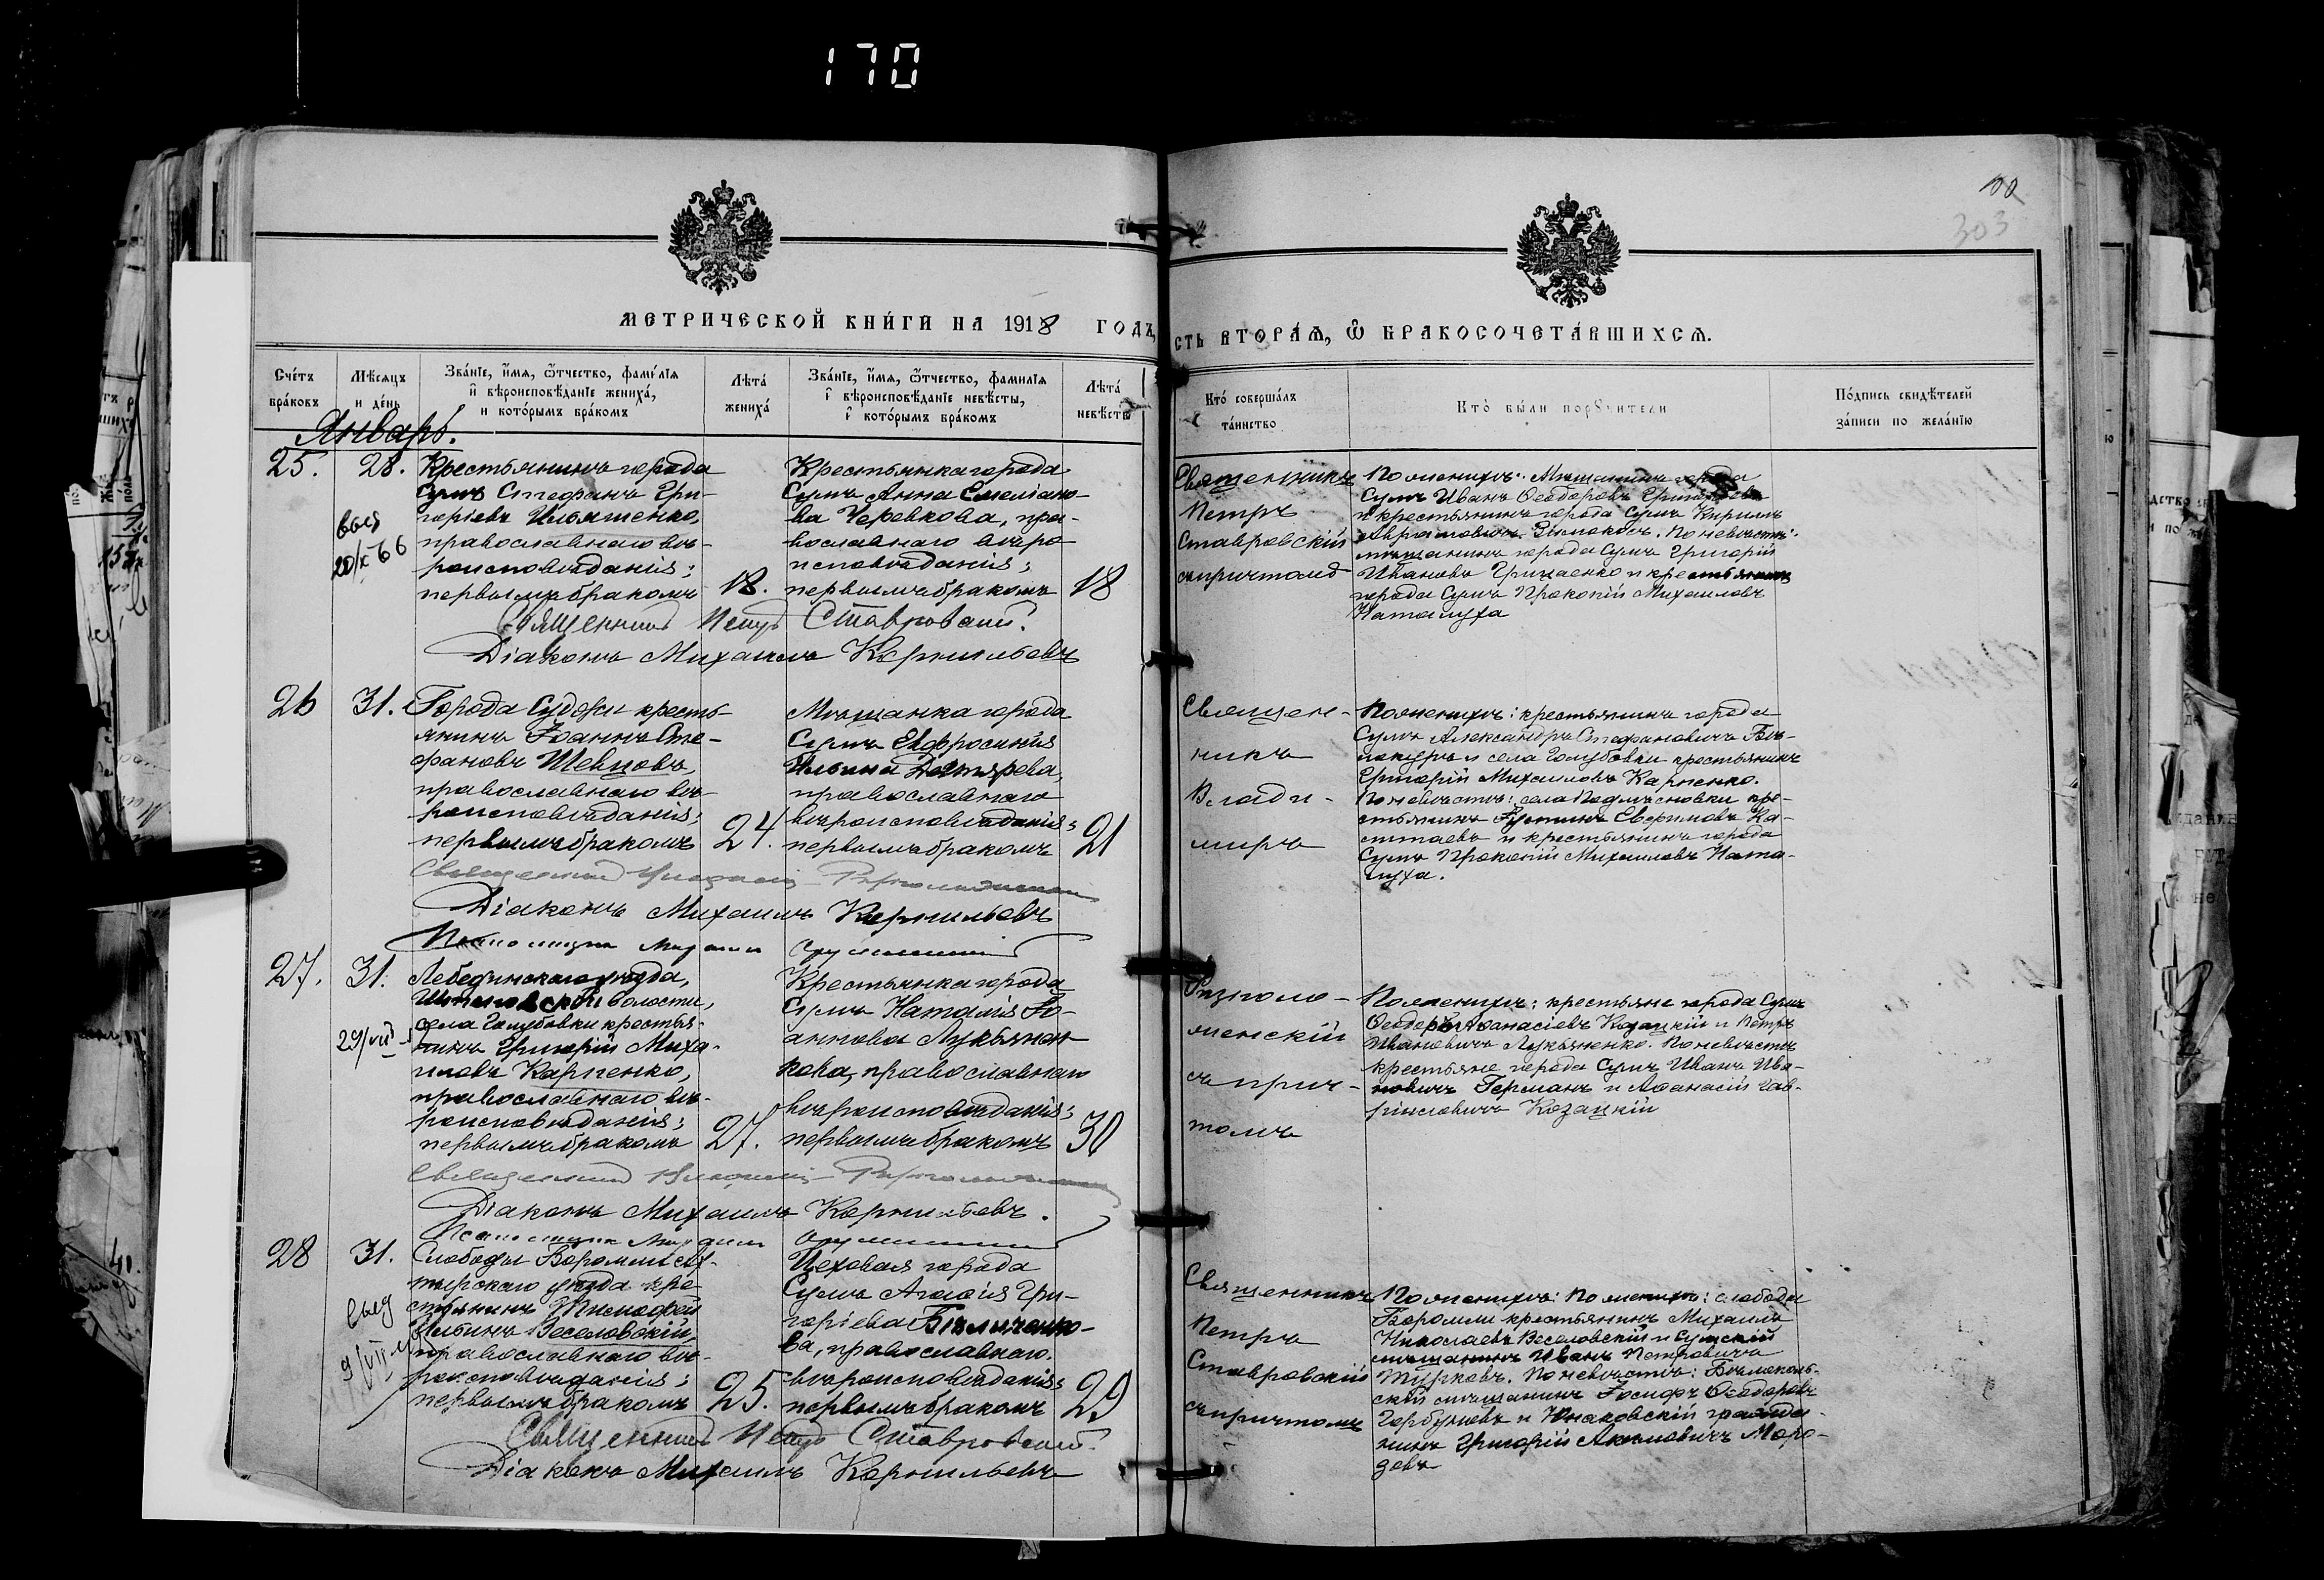 170
100
303
МЕТРИЧЕСКОЙ КНИГИ НА 1918 ГОДЪ,
СТЬ ВТОРАЯ, Ѿ БРАКОСОЧЕТАВШИХСЯ.
Счетъ браковъ
Мѣсяцъ и день
Званіе, имя, ѿтчество, фамилія
и вѣроисповѣданіе жениха,
и которымъ бракомъ
Лѣта жениха
Званіе, имя, ѿтчество, фамилія
и вѣроисповѣданіе невѣсты,
и которымъ бракомъ
Лѣта невѣсты
Кто совершалъ таинство
Кто были поручители
Подпись свидѣтелей
записи по желанію
Январь.
25. 28.
Крестьянинъ города
Сумъ Стефанъ Гри-
горіевъ Ильяшенко,
православнаго вѣ-
роисповѣданія;
первымъ бракомъ
18.
Крестьянка города
Сумъ Анна Емеліано-
ва Черевкова, пра-
вославнаго вѣро
исповѣданія;
первымъ бракомъ
18
выд
20/X 66
Священникъ
Петръ
Ставровскій
съ причтомъ
Поженихѣ: Мѣщанинъ города
Сумъ Иванъ Ѳеодоровъ
и крестьянинъ города Сумъ Кириллъ
По невѣстѣ:
мѣщанинъ города Сумъ Григорій
Ивановъ Грицаенко и крестьянинъ
города Сумъ Прокопій Михаиловъ
Наталуха
Священникъ Петръ Ставровскій.
Діаконъ Михаилъ Корнильевъ
26 31.
Города Суджи кресть-
янинъ Іоаннъ Сте-
фановъ Шевцовъ,
православнаго вѣ-
роисповѣданія;
первымъ бракомъ
24.
Мѣщанка города
Сумъ Евфросинія
Ильина Дегтярева,
православнаго
вѣроисповѣданія;
первымъ бракомъ
21
Священ-
никъ
Влади-
миръ
Поженихѣ: крестьянинъ города
Сумъ Александръ Стефановичъ Бѣ-
локуръ и села Голубовки крестьянинъ
Григорій Михаиловъ Карпенко.
По невѣстѣ: села Подлѣсновки кре-
стьянинъ Евфимовъ Ка-
ситаевъ и крестьянинъ города
Сумъ Прокопій Михаиловъ Ната-
луха.
Священникъ
Діаконъ Михаилъ Корнильевъ
27. 31.
Лебединскаго уѣзда,
Штеповской волости,
села Голубовки крестья-
нинъ Григорій Миха-
иловъ Карпенко,
православнаго вѣ-
роисповѣданія;
первымъ бракомъ
27.
Крестьянка города
Сумъ Наталія Іо-
аннова Лукьянен-
кова, православнаго
вѣроисповѣданія;
первымъ бракомъ
30
29/VII
Ризполо-
женскій
съ прич-
томъ
Поженихѣ: крестьяне города Сумъ
Ѳеодоръ Аѳанасіевъ Козацкій и Петръ
Ивановичъ Лукьяненко. По невѣстѣ
крестьяне города Сумъ Иванъ Ива-
новичъ Германъ и Аѳанасій Гав-
ріиловичъ Козацкій
Священникъ
Діаконъ Михаилъ Корнильевъ.
28 31.
Слободы Боромли Ах-
тырскаго уѣзда кре-
стьянинъ Тимофей
Ильинъ Веселовскій,
православнаго вѣ-
роисповѣданія;
первымъ бракомъ
25.
Цеховая города
Сумъ Агафія Гри-
горіева Бѣличенко-
ва, православнаго
вѣроисповѣданія;
первымъ бракомъ
29
выд
9/VII
Священникъ
Петръ
Ставровскій
съ причтомъ
Поженихѣ: По женихѣ: слободы
Боромли крестьянинъ Михаилъ
Николаевъ Веселовскій и Сумскій
мѣщанинъ Иванъ Петровичъ
Турковъ. По невѣстѣ: Бѣлополь-
скій мѣщанинъ Іосифъ Ѳеодоровъ
Горбуновъ и Юнаковскій гражда-
нинъ Григорій Акимовичъ Моро-
зовъ
Священникъ Петръ Ставровскій.
Діаконъ Михаилъ Корнильевъ